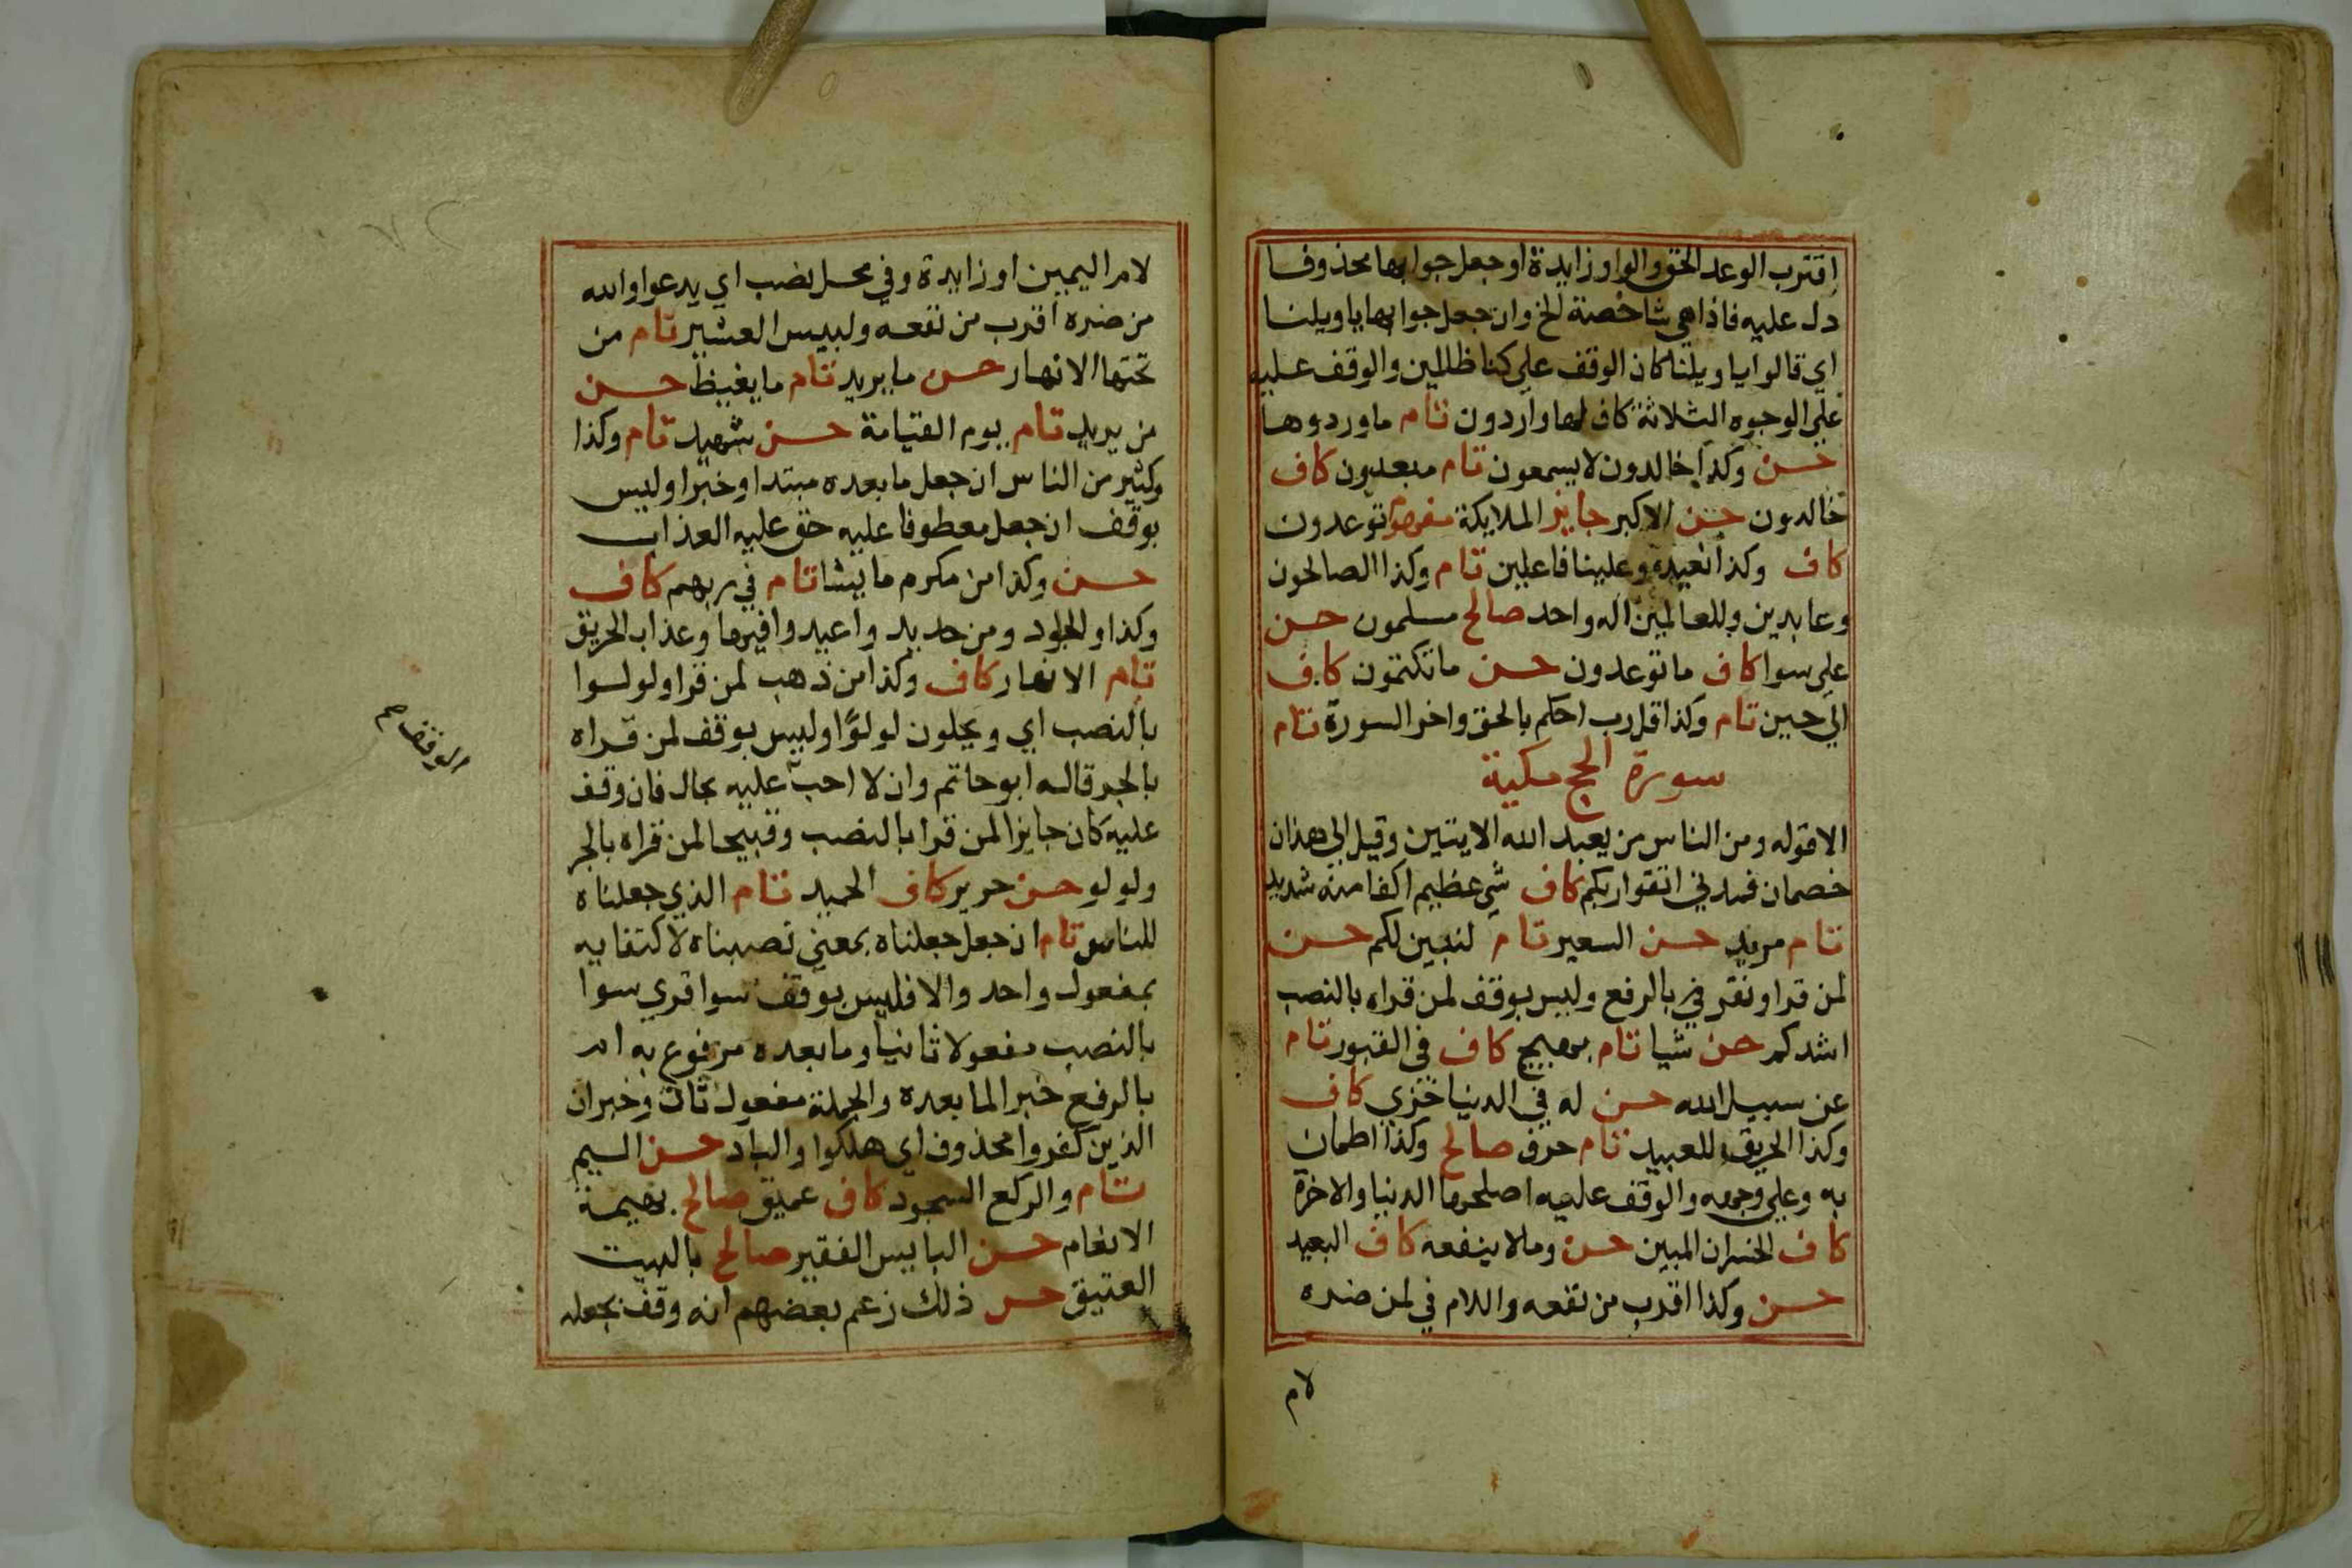 اقترب الوعد الحق والواو زايدة او جعل جوابها محذوفا
دل عليه فاذا هي شاخصة الخ وان جعل جوابها يا ويلنا
اي قالوا يا ويلنا كان الوقف على كنا ظالمين والوقف عليه
على الوجوه الثلاثة كاف لها واردون تام ما وردوها
حسن وكذا خالدون لا يسمعون تام مبعدون كاف
خالدون حسن الاكبر جايز الملايكة توعدون
كاف وكذا نعيده وعلينا فاعلين تام وكذا الصالحون
وعابدين وللعالمين اله واحد صالح مسلمون حسن
على سوا كاف ما توعدون حسن ما تكتمون كاف
الى حين تام وكذا قل رب احكم بالحق واخر السورة تام
سورة الحج مكية
الا قوله ومن الناس من يعبد الله الايتين وقيل الى هذان
خصمان فمدني اتقوا ربكم كاف شي عظيم اكفا منه شديد
تام مريد حسن السعير تام لنبين لكم حسن
لمن قرا ونقر في بالرفع وليس بوقف لمن قراه بالنصب
اشدكم حسن شيا تام بهيج كاف في القبور تام
عن سبيل الله حسن له في الدنيا خزي كاف
وكذا الحريق للعبيد تام حرف صالح وكذا اطمان
به وعلى وجهه والوقف عليه اصلحها الدنيا والاخرة
كاف الخسران المبين حسن وما لا ينفعه كاف البعيد
حسن وكذا اقرب من نفعه واللام في لمن ضره
لام
لام اليمين او زايدة وفي محل نصب اي يدعوا والله
من ضره اقرب من نفعه ولبيس العشير تام من
تحتها الانهار حسن ما يريد تام ما يغيظ حسن
من يريد تام يوم القيامة حسن شهيد تام وكذا
وكثير من الناس ان جعل ما بعده مبتدا وخبرا وليس
بوقف ان جعل معطوفا عليه حق عليه العذاب
حسن وكذا من مكرم ما يشا تام في ربهم كاف
وكذا والجلود ومن حديد واعيدوا فيها وعذاب الحريق
تام الانهار كاف وكذا من ذهب لمن قرا ولولوا
بالنصب اي ويحلون لولوًا وليس بوقف لمن قراه
بالجر قاله ابو حاتم وان لا احب عليه بحال فان وقف
الوقف صح
عليه كان جايزا لمن قرا بالنصب وقبيحا لمن قراه بالجر
ولولو حسن حرير كاف الحميد تام الذي جعلناه
للناس تام ان جعل جعلناه بمعنى نصبناه لاكتفايه
بمفعول واحد والا فليس بوقف سوا قري سوا
بالنصب مفعولا ثانيا وما بعده مرفوع به ام
بالرفع خبر الما بعده والجملة مفعول ثان وخبر ان
الذين كفروا محذوف اي هلكوا والباد حسن اليم
تام والركع السجود كاف عميق صالح بهيمة
الانعام حسن البايس الفقير صالح بالبيت
العتيق حسن ذلك زعم بعضهم انه وقف بجعله